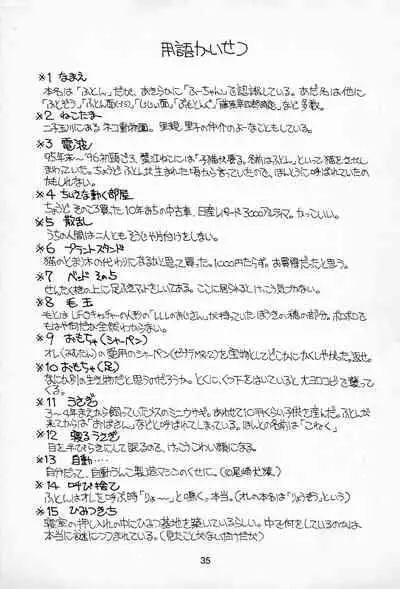 用語かいせつ
※1 なまえ
本名は「ふとん」だが、あきらかに「ふーちゃん」を認識している。あだ名は他に
「ふとぞう」「ふとん
など多数。
※2 ねこたま
二子玉川にあるネコ動物園。里親、里子の仲介のよーなこともしている。
※3 電波
95年末〜'96初頭ごろ、蟹江ねこには「子猫快寝る。名前はふとん」といって猫をさせし
まわっていた。ちょうどふとんが生まれた頃から言っていたので、ほんとうに呼ばれていたの
かもしれない。
※4 ちいさな動く部屋
ちょうどそのころ買った10年おちの中古車、日産レパード3000アルティマ。かっこいい。
※5 散乱
うちの人間は二人ともそうじや片付けをしない。
※6 プラントスタンド
猫のとまり木の代わりになるかなと思って買った。1000円たらず。お買得だったと思う。
※7 ベッド その5
せんたく機の上に足ふきマットをしいてある。ここに居られるとけっこう気づかない。
※8 毛玉
もとはUFOキャッチャーの人形の「レレレのおじさん」が持っていたほうきの穂の部分。ボロボロで
もはや何だか全然わからない。
※9 おもちゃ(シャーペン)
オレ(みむたん)の愛用のシャーペン(ゼブラMR-2)を宝物としてどこかにかくしやがった。返せ。
※10 おもちゃ(足)
なにか別の生き物だと思うのだろうか。とくに、くつ下をはいていると大ヨロコビで襲って
くる。
※11 うさぎ
3〜4年まえから飼っていたメスのミニウサギ。あわせて10平くらい子供を産んだ。ふとんが
来てからは「おばさん」などと呼ばれてしまっている。ほんとの名前は「こねく」
※12 寝るうさぎ
目を手びらきにして眠るので、けっこうこわい顔になる。
※13 自動‥‥
自分だって、自動うんこ製造マシンのくせに。(©尾崎犬凍)
※14 呼び捨て
ふとんはオレを呼ぶ時「りょ〜」と鳴く。本当。(オレの本名は「りょうぞう」という)
※15 ひみつきち
寝室の押し入れの中にひみつ基地を築いているらしい。中で何をしているのかは、
本当に謎につつまれている。(見たことがないだけだが)
35